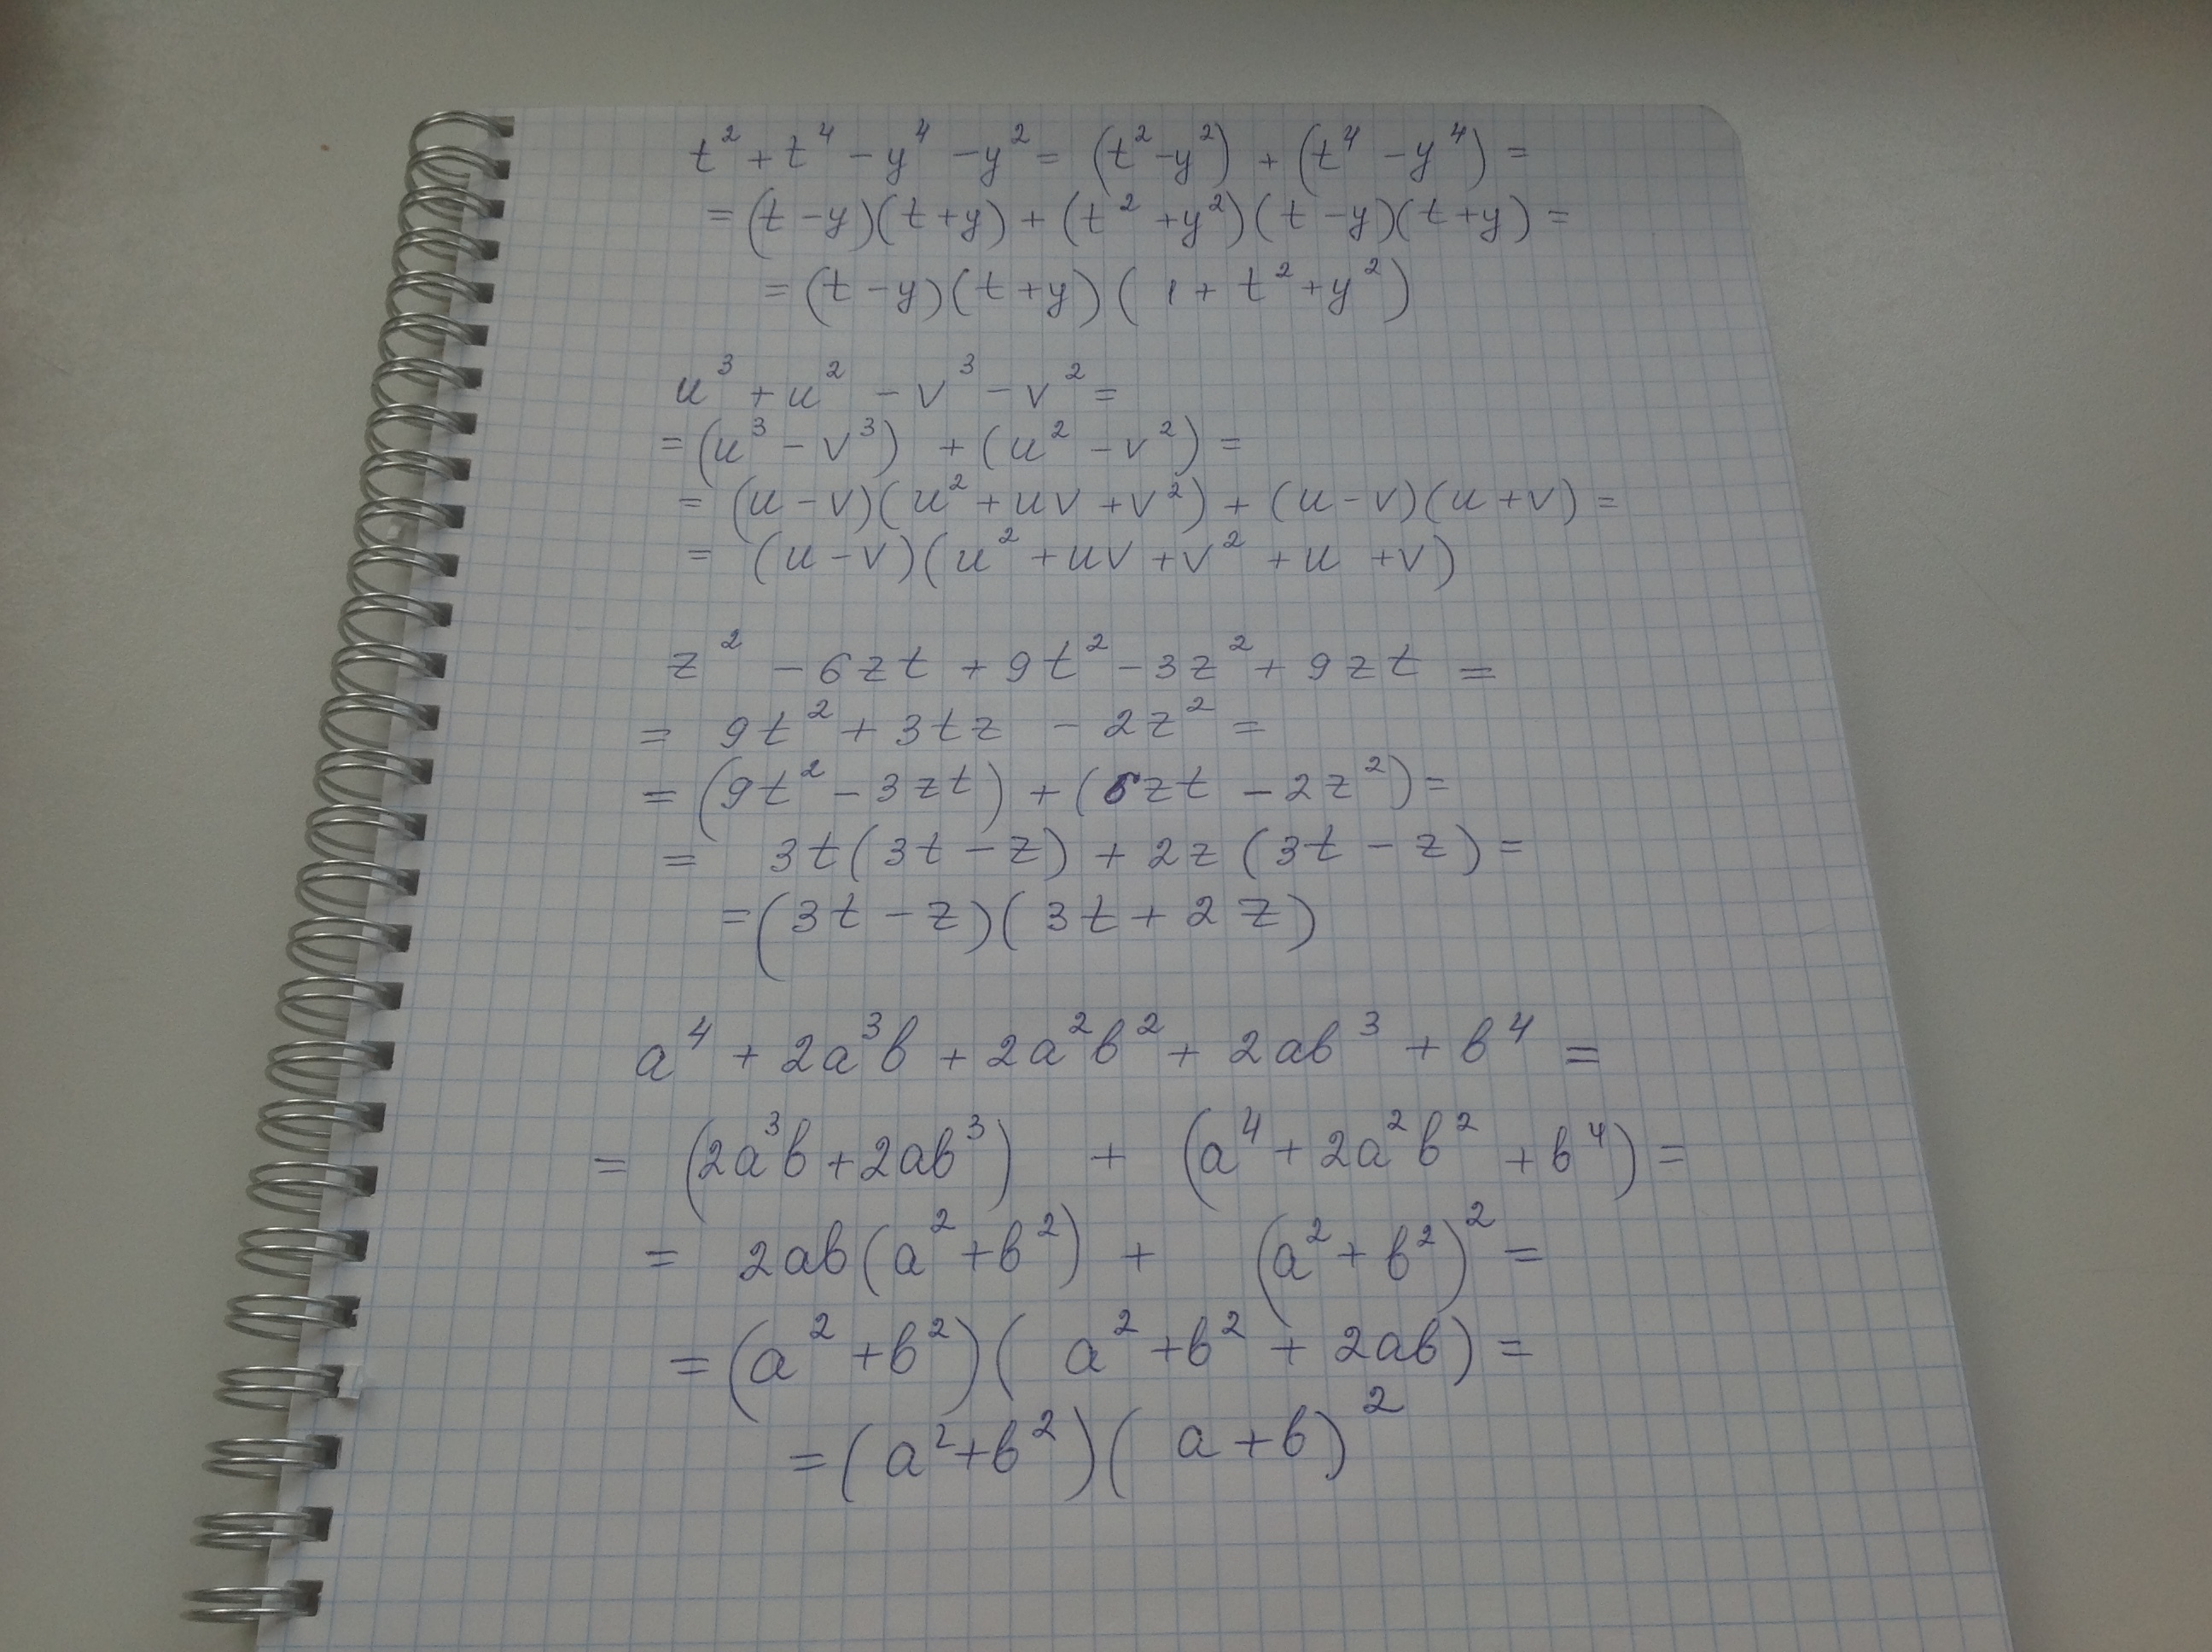 t² + t⁴ - y⁴ - y² = (t² - y²) + (t⁴ - y⁴) =
= (t - y)(t + y) + (t² + y²)(t - y)(t + y) =
= (t - y)(t + y)(1 + t² + y²)
u³ + u² - v³ - v² =
= (u³ - v³) + (u² - v²) =
= (u - v)(u² + uv + v²) + (u - v)(u + v) =
= (u - v)(u² + uv + v² + u + v)
z² - 6zt + 9t² - 3z² + 9zt =
= 9t² + 3tz - 2z² =
= (9t² - 3zt) + (6zt - 2z²) =
= 3t(3t - z) + 2z(3t - z) =
= (3t - z)(3t + 2z)
a⁴ + 2a³b + 2a²b² + 2ab³ + b⁴ =
= (2a³b + 2ab³) + (a⁴ + 2a²b² + b⁴) =
= 2ab(a² + b²) + (a² + b²)² =
= (a² + b²)(a² + b² + 2ab) =
= (a² + b²)(a + b)²